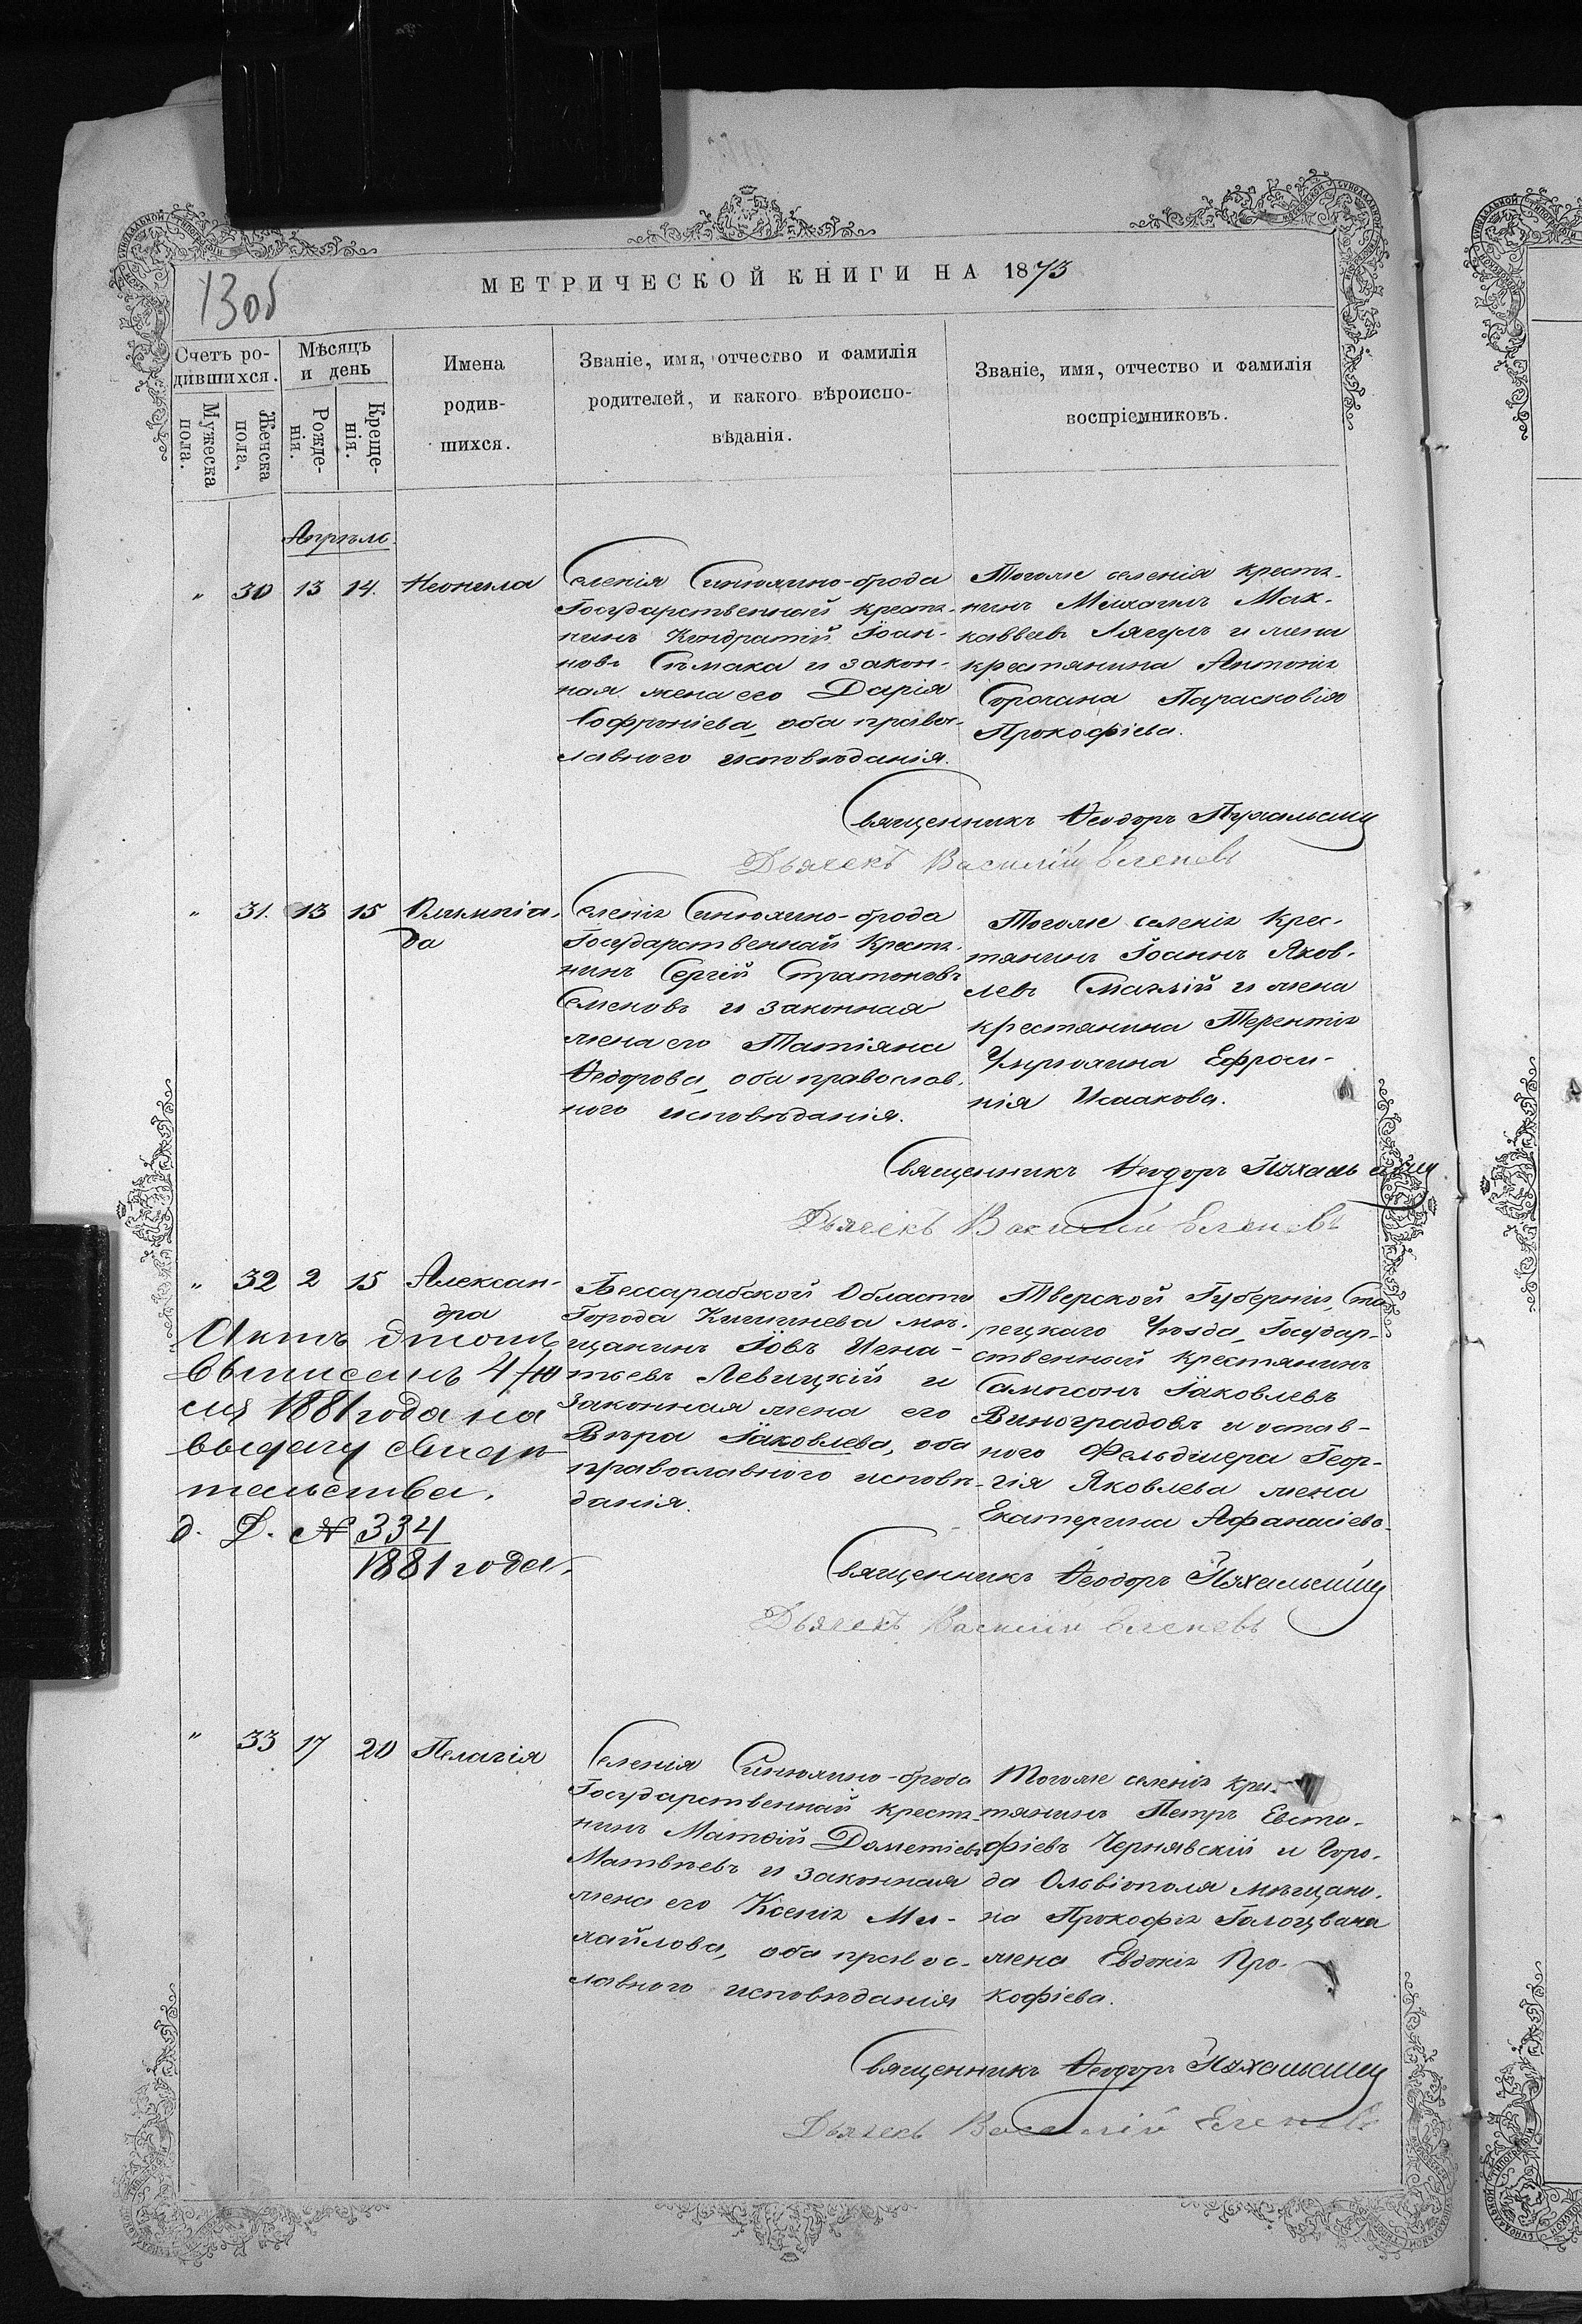 МЕТРИЧЕСКОЙ КНИГИ НА 1873
13 об
Счетъ ро-
дившихся.
Мужеска
пола.
Женска
пола,
Мѣсяцъ
и день
Рожде-
нія.
Креще-
нія.
Имена
родив-
шихся.
Званіе, имя, отчество и фамилія
родителей, и какого вѣроиспо-
вѣданія.
Званіе, имя, отчество и фамилія
воспріемниковъ.
Апрѣль.
" 30 13 14. Неонила
Селенія Синюхино-брода
Государственный крестя-
нинъ Кондратій Іоан-
новъ Сѣмака и закон-
ная жена его Дарія
Софроніева, оба право-
славного исповѣданія.
Тогоже селенія крестя-
нинъ Михаилъ Мак-
кавѣевъ Лягулъ и жена
крестянина Антонія
Сорочана Парасковія
Прокофіева.
Священникъ Ѳеодоръ Пухальскій
Дьячекъ Василій Еленевъ
" 31. 13 15 Олимпіа-
да
Селенія Синюхино-брода
Государственный Крестя-
нинъ Сергій Стратоновъ
Семеновъ и законная
жена его Татіяна
Ѳедорова, оба православ-
ного исповѣданія.
Тогоже селенія Крес-
тянинъ Іоаннъ Яков-
левъ Смаглій и жена
крестянина Терентія
Ефроси-
нія Исаакова.
Священникъ Ѳеодоръ Пухальскій
Дьячекъ Василій Еленевъ
" 32 2 15 Алексан-
дра
Актъ этотъ
выписанъ 4
1881 года на
выдачу свидѣ-
тельства.
д. Д. № 334
1881 года.
Бессарабской Области
Города Кишинева мѣ-
щанинъ Іовъ Игна-
тьевъ Левицкій и
законная жена его
Вѣра Іаковлева, оба
православного исповѣ-
данія.
Тверской Губерніи, Ста-
рецкаго Уѣзда, Государ-
ственный крестянинъ
Сампсонъ Іаковлевъ
Виноградовъ и остав-
ного Фельдшера Геор-
гія Яковлева жена
Екатерина Афанасіева.
Священникъ Ѳеодоръ Пухальскій
Дьячекъ Василій Еленевъ
" 33 17 20 Пелагія
Селенія Синюхино-брода
Государственный крестя-
нинъ Матѳій Дометіевъ
Матвѣевъ и законная
жена его Ксенія Ми-
хайлова, оба правос-
лавного исповѣданія
Тогоже селенія крес-
тянинъ Петръ Евста-
фіевъ Чернявскій и Горо-
да Ольвіополя мѣщани-
на Прокофія Голоцвана
жена Евдокія Про-
кофіева.
Священникъ Ѳеодоръ Пухальскій
Дьячекъ Василій Еленевъ